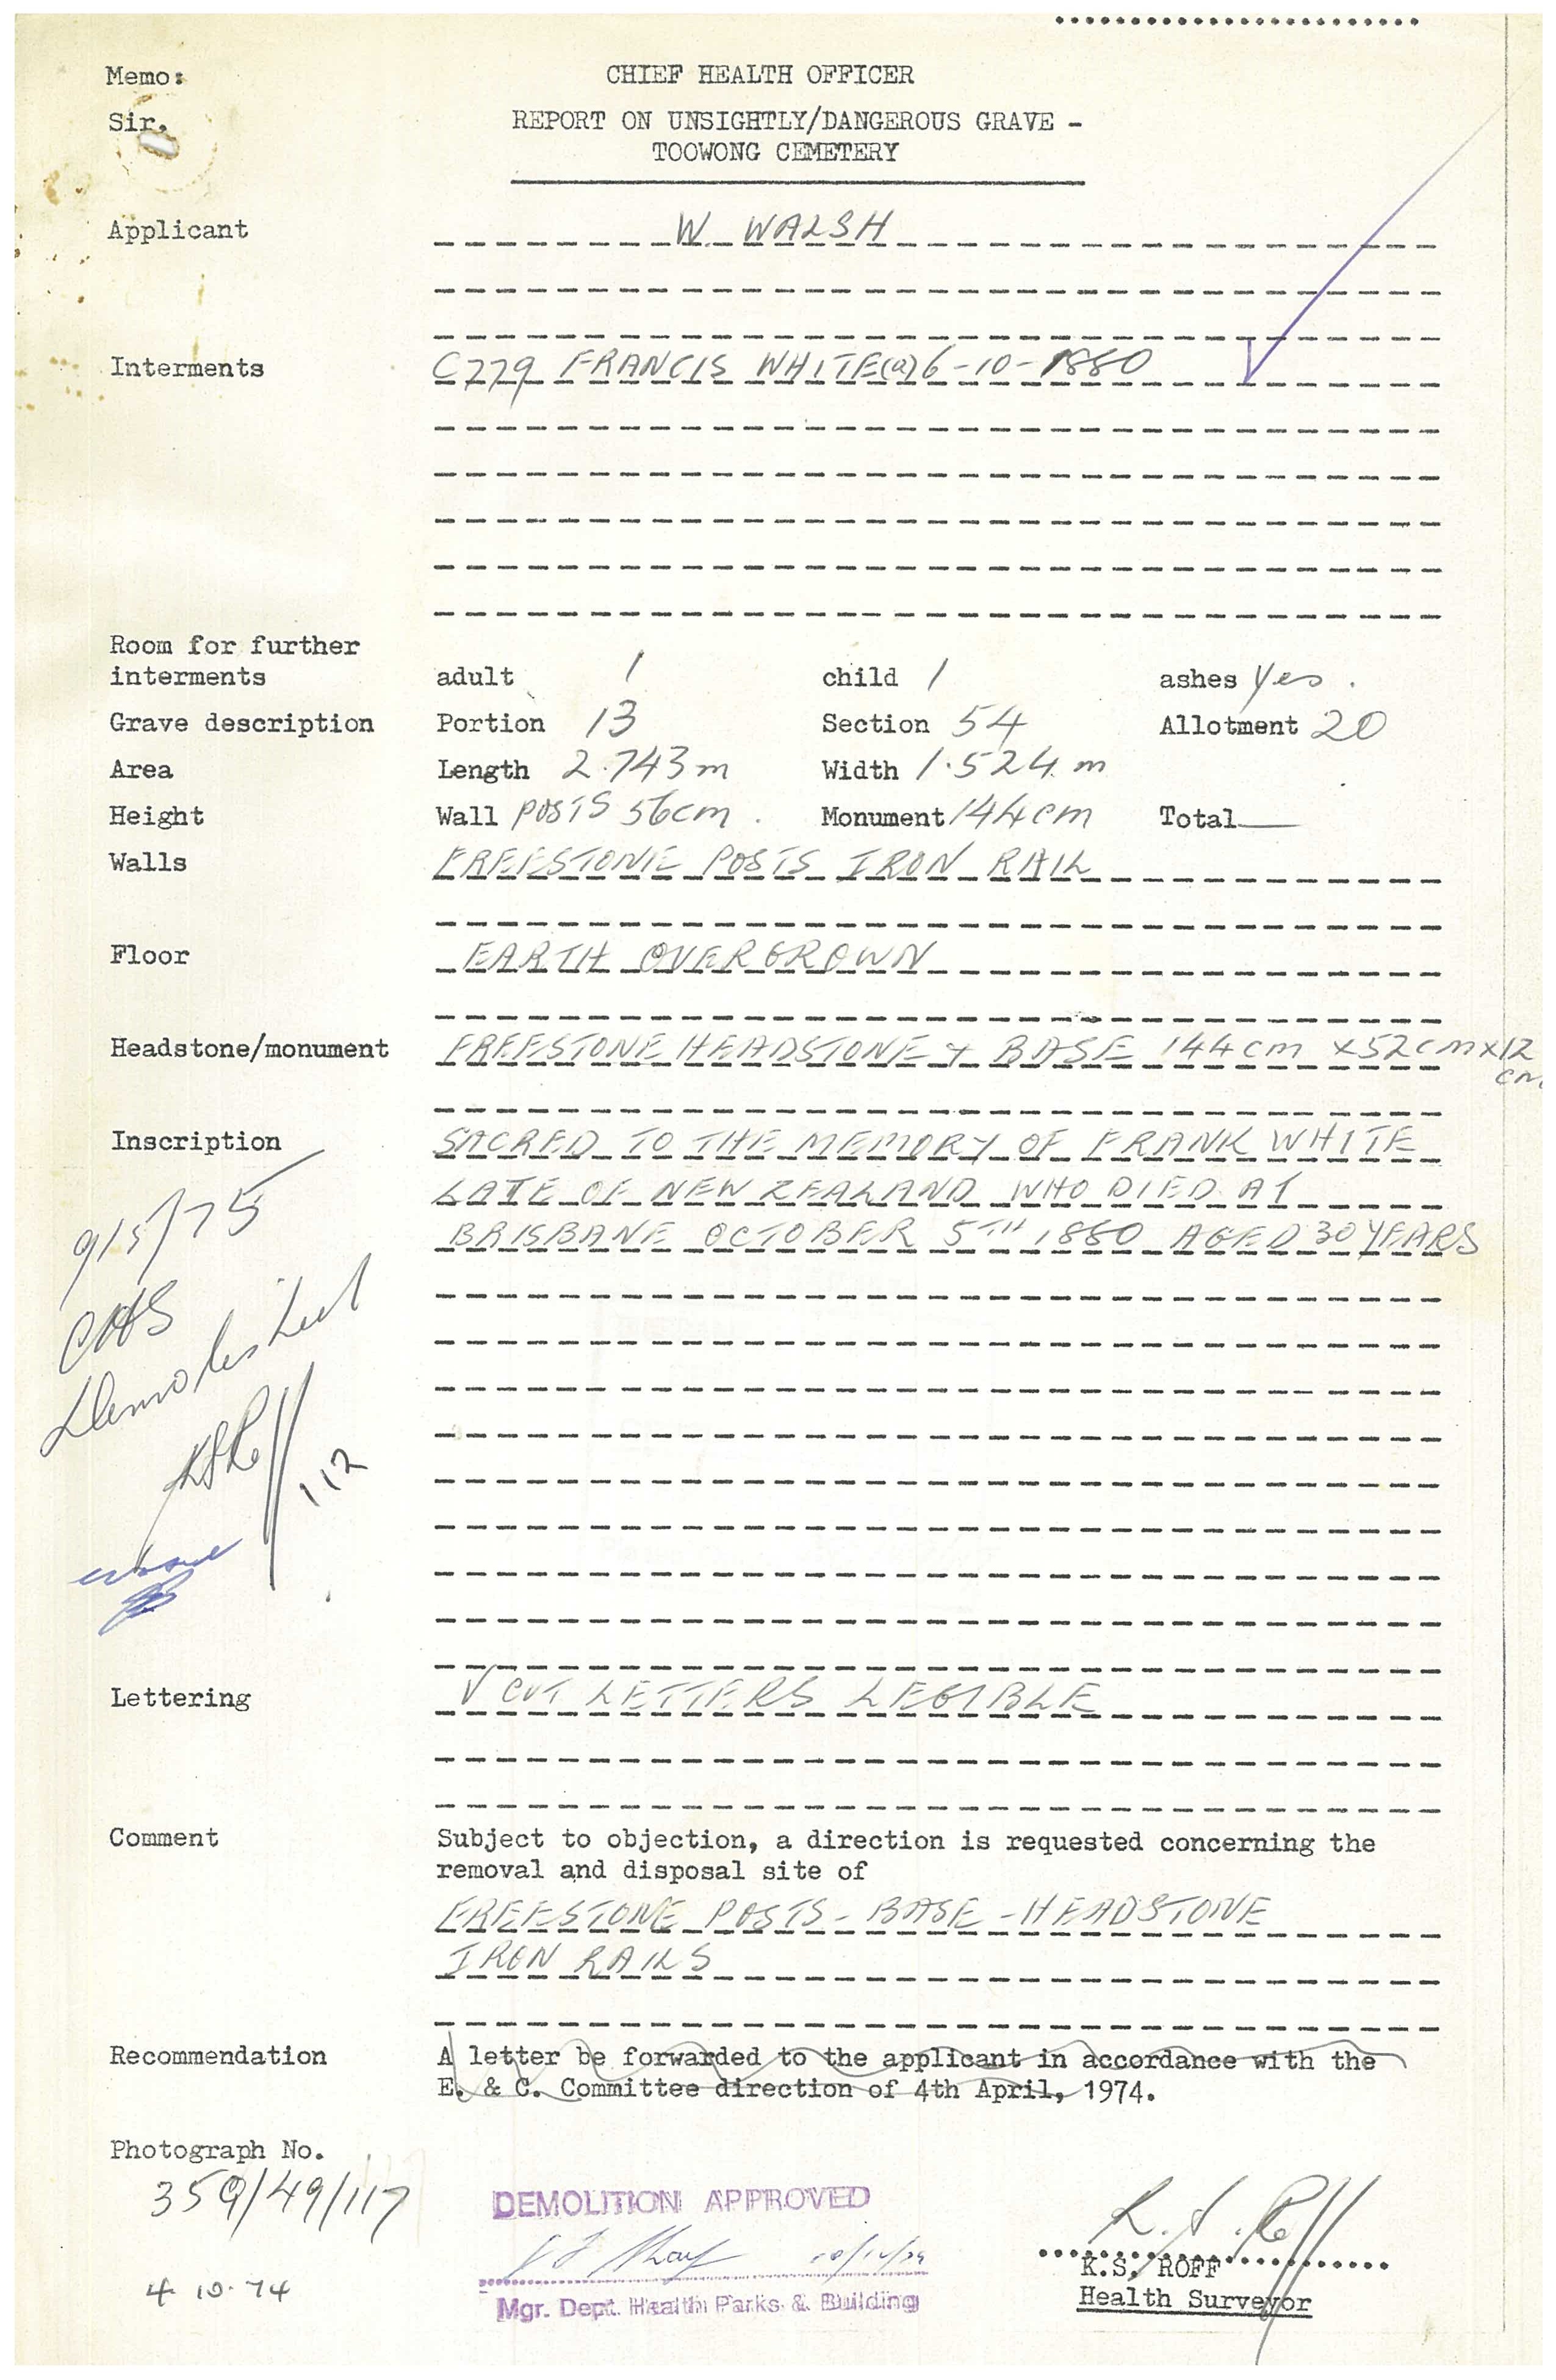 Memo:
CHIEF HEALTH OFFICER
Sir,
REPORT ON UNSIGHTLY/DANGEROUS GRAVE -
TOOWONG CEMETERY
Applicant W. WALSH
Interments C779 FRANCIS WHITE (a) 6-10-1880
Room for further
interments adult 1 child 1 ashes Yes.
Grave description Portion 13 Section 54 Allotment 20
Area Length 2.743m Width 1.524m
Height Wall POSTS 56cm. Monument 144cm Total
Walls FREESTONE POSTS IRON RAIL
Floor EARTH OVERGROWN
Headstone/monument FREESTONE HEADSTONE + BASE 144cm x 52cm x 12
cm
Inscription SACRED TO THE MEMORY OF FRANK WHITE
LATE OF NEW ZEALAND WHO DIED AT
BRISBANE OCTOBER 5TH 1880 AGED 30 YEARS
9/5/75
CHS
Demolished
KSRoff
112
Lettering V CUT LETTERS LEGIBLE
Comment Subject to objection, a direction is requested concerning the
removal and disposal site of
FREESTONE POSTS - BASE - HEADSTONE
IRON RAILS
Recommendation A letter be forwarded to the applicant in accordance with the
E. & C. Committee direction of 4th April, 1974.
Photograph No.
359/49/117
DEMOLITION APPROVED
K.S. Roff
K.S. ROFF
4 10.74
Mgr. Dept. Health Parks & Building
Health Surveyor